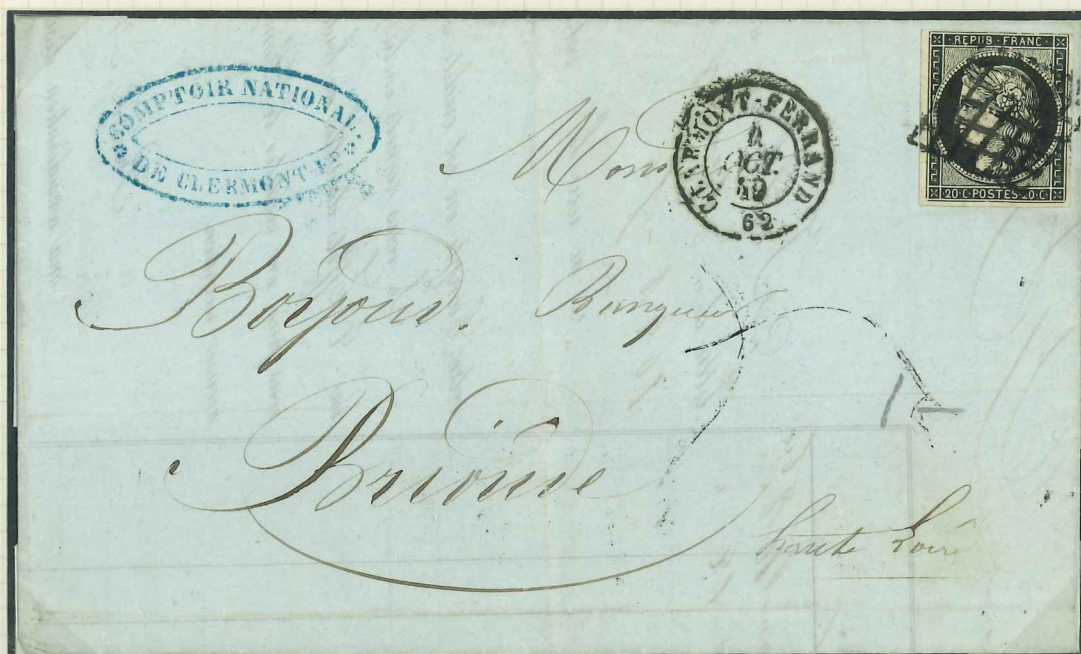 COMPTOIR NATIONAL
DE CLERMONT-FD
CLERMONT-FERRAND
4
OCT.
49
62
REPUB·FRANC·
20·C·POSTES·20·C·
Mons
Boyoud. Banquier
Brioude
haute Loire